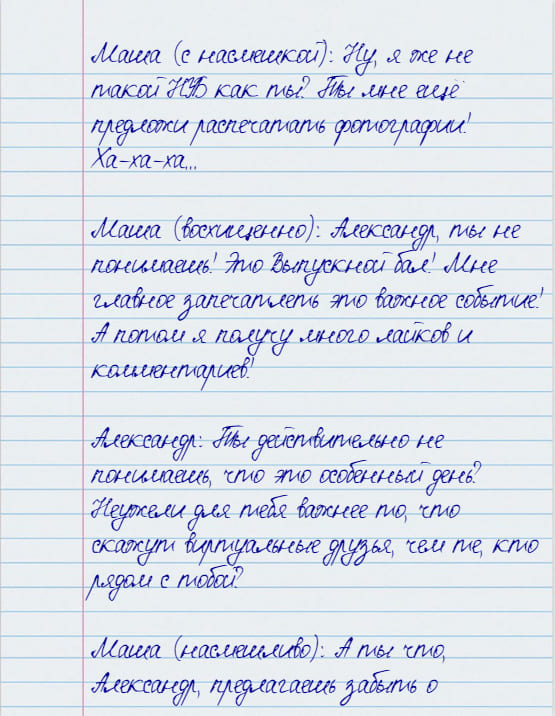 Маша (с насмешкой): Ну, я же не
такой НУБ как ты? Ты мне ещё
предложи распечатать фотографии!
Ха-ха-ха...
Маша (восхищенно): Александр, ты не
понимаешь! Это Выпускной бал! Мне
главное запечатлеть это важное событие!
А потом я получу много лайков и
комментариев!
Александр: Ты действительно не
понимаешь, что это особенный день?
Неужели для тебя важнее то, что
скажут виртуальные друзья, чем те, кто
рядом с тобой?
Маша (насмешливо): А ты что,
Александр, предлагаешь забыть о